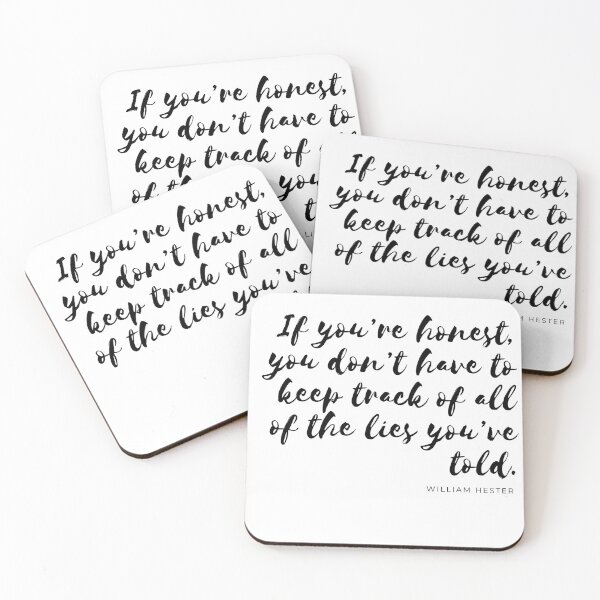 If you're honest,
you don't have to
keep track of
of
If you're honest,
you don't have to
keep track of all
of the lies you've
told.
HESTER
If you're honest,
you don't have to
keep track of all
of the lies you've
If you're honest,
you don't have to
keep track of all
of the lies you've
told.
WILLIAM HESTER